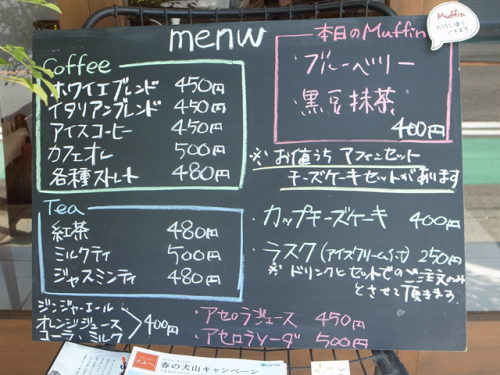 menu
Coffee
ホワイエブレンド 450円
イタリアンブレンド 450円
アイスコーヒー 450円
カフェオレ 500円
各種ストレート 480円
Tea
紅茶 480円
ミルクティ 500円
ジャスミンティ 480円
ジンジャーエール
オレンジジュース
コーラ・ミルク
400円
アセロラジュース 450円
アセロラソーダ 500円
本日のMuffin
ブルーベリー
黒豆抹茶
400円
※ お値うち マフィンセット
チーズケーキセットがあります
・カップチーズケーキ 400円
・ラスク(アイスクリーム付) 250円
※ ドリンクとセットでのご注文のみ
とさせて頂きます。
Muffin
お持ち帰り
できます
春の犬山キャンペーン